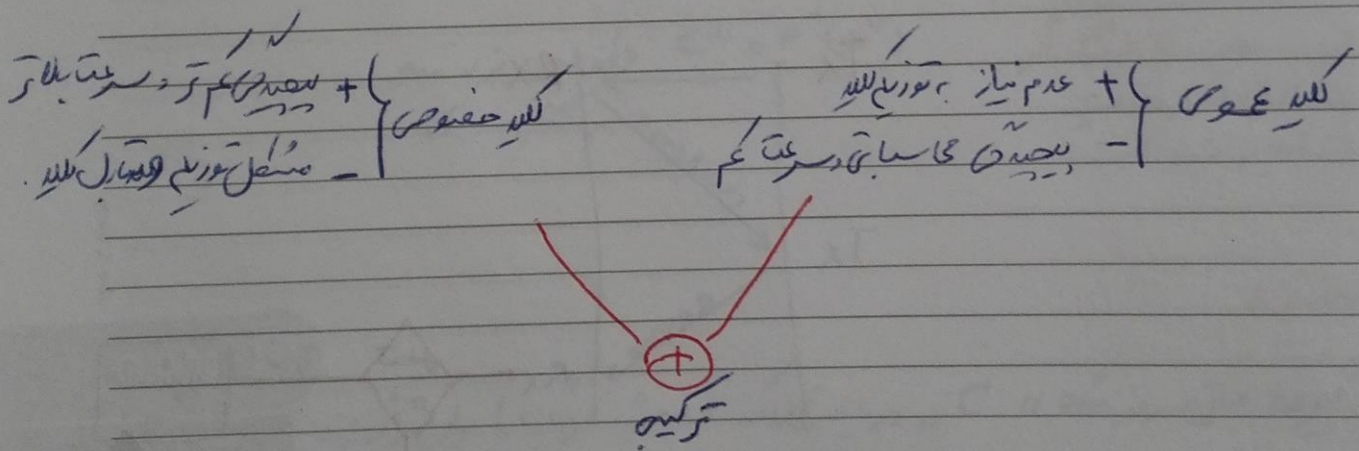 کلید عمومی
+ عدم نیاز به توزیع کلید
- پیچیدگی محاسباتی و سرعت کم
کلید خصوصی
+ پیچیدگی کم تر و سرعت بالاتر
- مشکل توزیع و تبادل کلید.
+
ترکیب